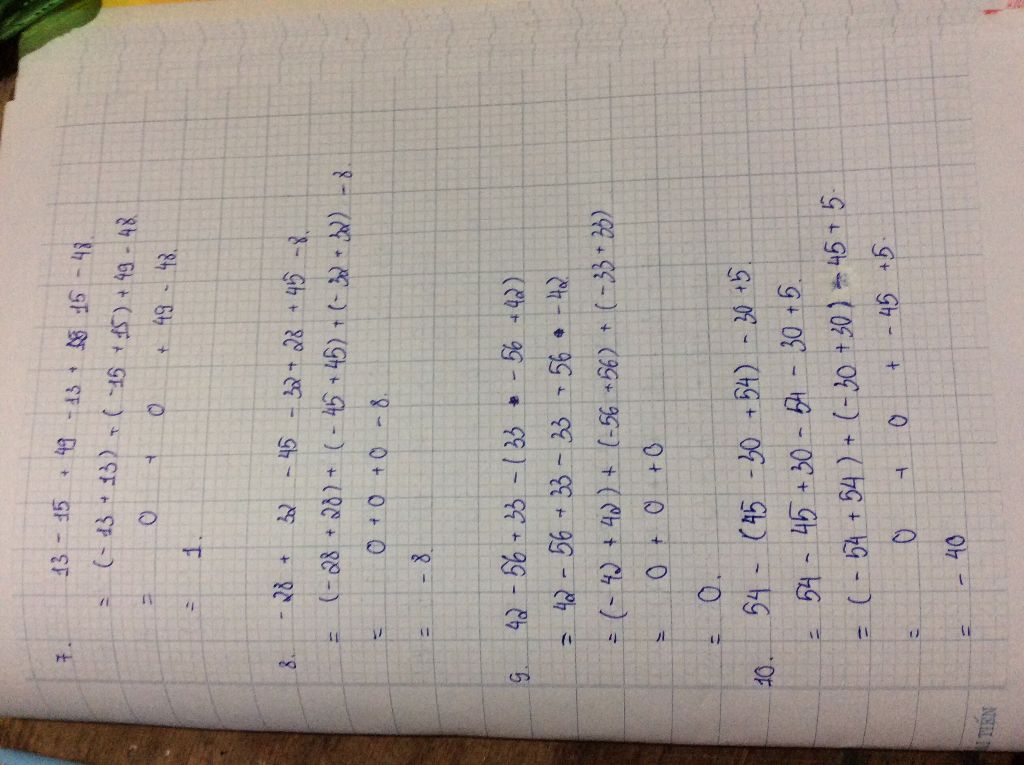 7. 13 - 15 + 49 - 13 + 15 - 48.
= (- 13 + 13) + ( - 15 + 15) + 49 - 48.
= 0 + 0 + 49 - 48.
= 1.
8. - 28 + 32 - 45 - 32 + 28 + 45 - 8.
= (- 28 + 28) + ( - 45 + 45) + (- 32 + 32) - 8.
= 0 + 0 + 0 - 8.
= - 8.
9. 42 - 56 + 33 - (33 - 56 + 42)
= 42 - 56 + 33 - 33 + 56 - 42
= (- 42 + 42) + (-56 + 56) + (- 33 + 33)
= 0 + 0 + 0
= 0.
10. 54 - (45 - 30 + 54) - 30 + 5.
= 54 - 45 + 30 - 54 - 30 + 5.
= (- 54 + 54) + (- 30 + 30) - 45 + 5.
= 0 + 0 + - 45 + 5.
= - 40
TIẾN